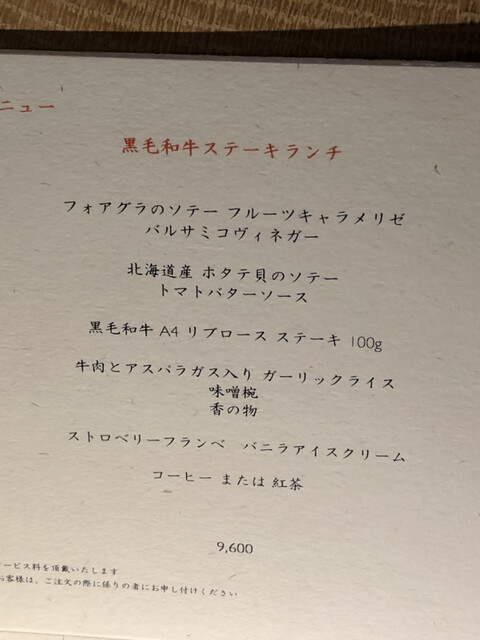 ニュー
黒毛和牛ステーキランチ
フォアグラのソテー フルーツキャラメリゼ
バルサミコヴィネガー
北海道産 ホタテ貝のソテー
トマトバターソース
黒毛和牛 A4 リブロース ステーキ 100g
牛肉とアスパラガス入り ガーリックライス
味噌椀
香の物
ストロベリーフランベ　バニラアイスクリーム
コーヒー または 紅茶
9,600
ービス料を頂戴いたします
お客様は、ご注文の際に係りの者にお申し付けください